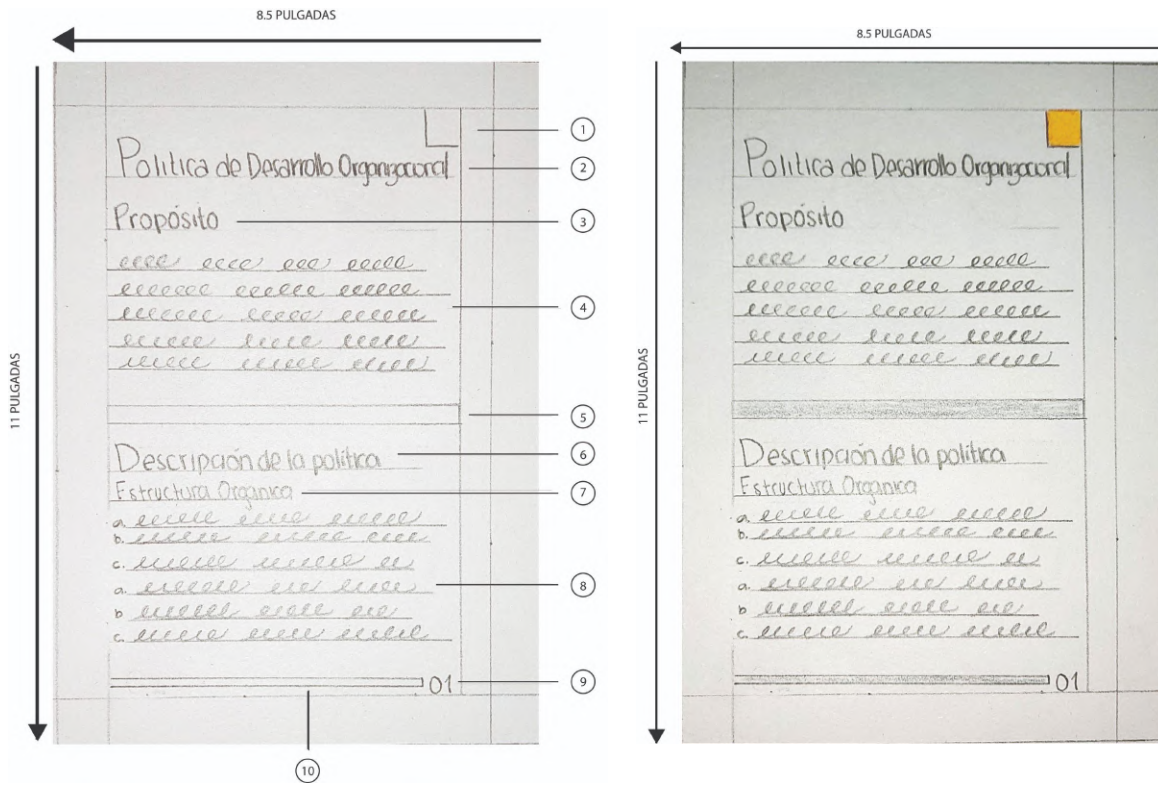 8.5 PULGADAS
11 PULGADAS
Política de Desarrollo Organizacional
Propósito
Descripción de la política
Estructura Orgánica
a.
b.
c.
a.
b
c.
01
1
2
3
4
5
6
7
8
9
10
8.5 PULGADAS
11 PULGADAS
Política de Desarrollo Organizacional
Propósito
Descripción de la política
Estructura Orgánica
a.
b.
c.
a.
b
c.
01